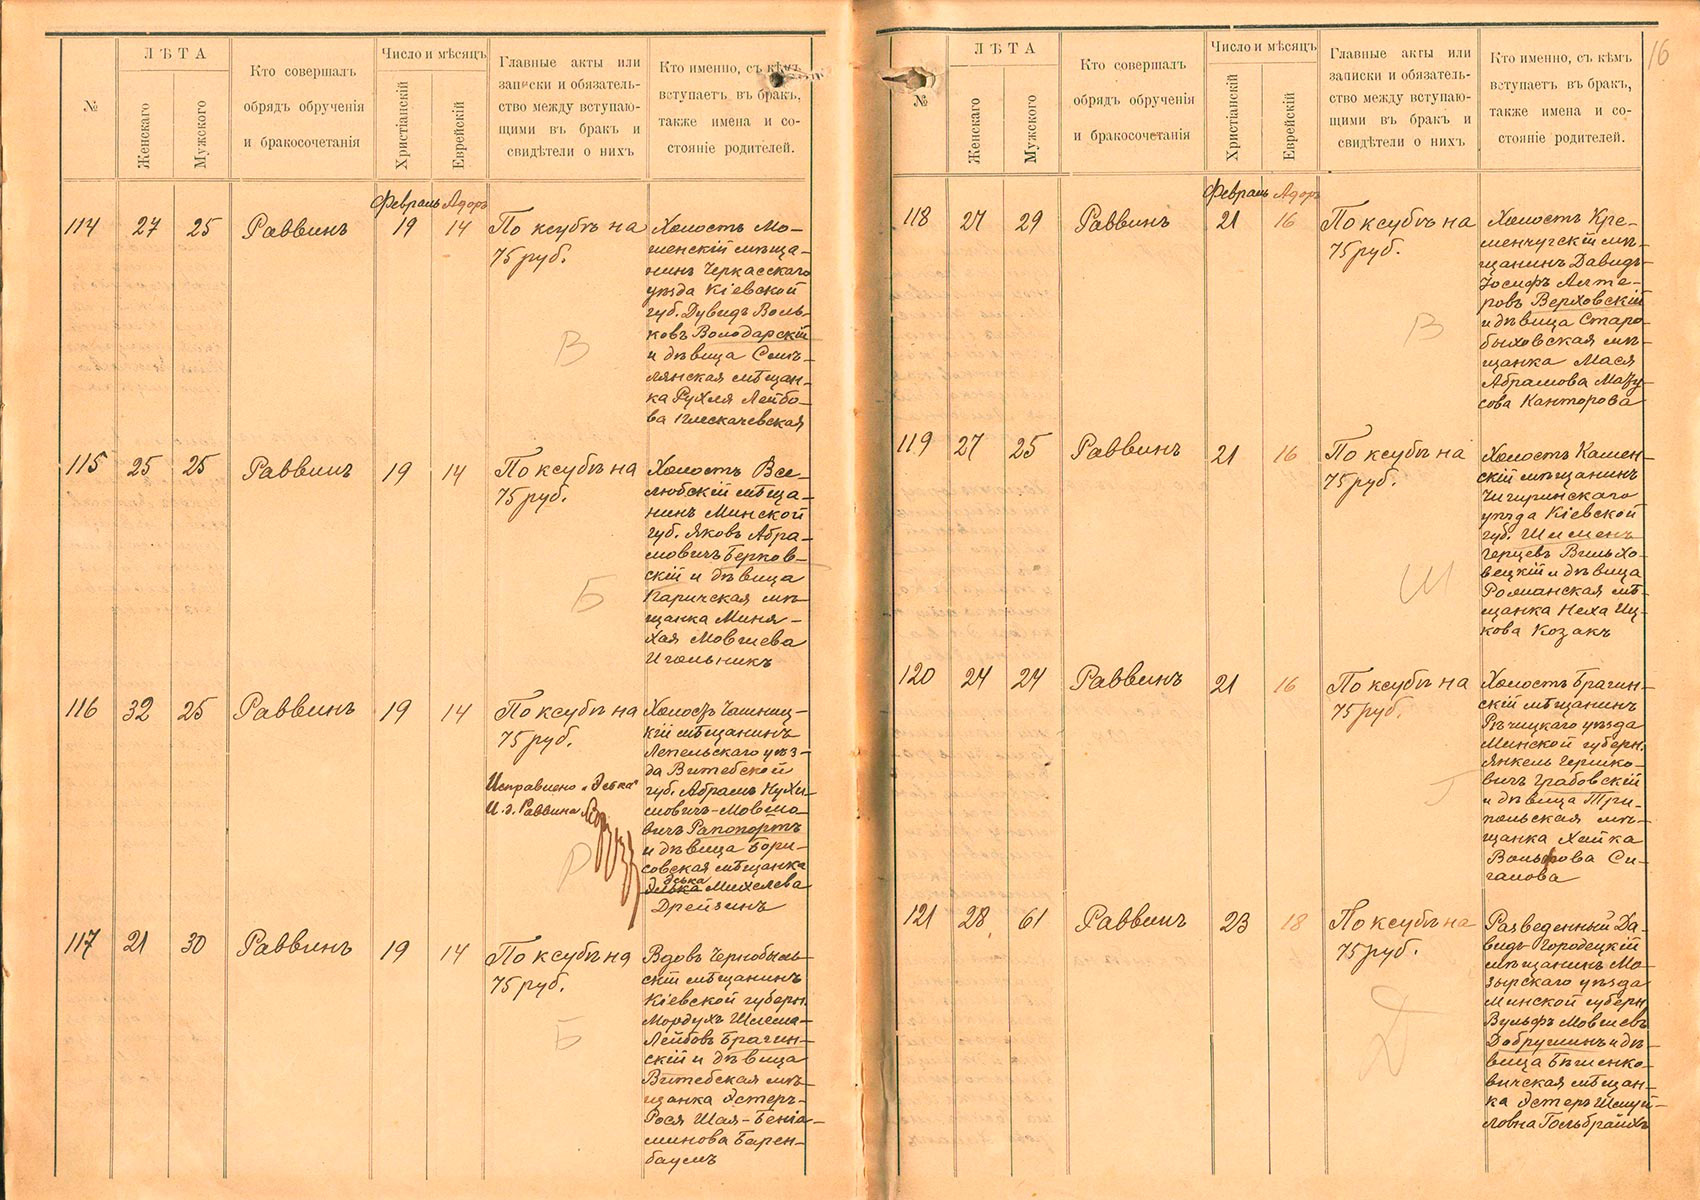 №
ЛѢТА
Женскаго
Мужского
Кто совершалъ
обрядъ обрученія
и бракосочетанія
Число и мѣсяцъ
Христіанскій
Еврейскій
Главные акты или
записки и обязатель-
ство между вступаю-
щими въ бракъ и
свидѣтели о нихъ
Кто именно, съ кѣмъ
вступаетъ въ бракъ,
также имена и со-
стояніе родителей.
Февраль Адоръ
114 27 25 Раввинъ 19 14
По ксубѣ на
75 руб.
Холостъ Мо-
шенскій мѣща-
нинъ Черкасскаго
уѣзда Кіевской
губ. Дувидъ Воль-
ковъ Володарскій
и дѣвица Смѣ-
лянская мѣщан-
ка Рухля Лейбо-
ва Плескачевская
В
115 25 25 Раввинъ 19 14
По ксубѣ на
75 руб.
Холостъ Все-
любскій мѣща-
нинъ Минской
губ. Яковъ Абра-
мовичъ Берков-
скій и дѣвица
Паричская мѣ-
щанка Миня-
Хая Мовшева
Игольникъ
Б
116 32 25 Раввинъ 19 14
По ксубѣ на
75 руб.
Исправлено „Эська“
И. д. Раввина
Холостъ Чашниц-
кій мѣщанинъ
Лепельскаго уѣз-
да Витебской
губ. Абрамъ Нухи-
мовичъ-Мовшо-
вичъ Рапопортъ
и дѣвица Бори-
совская мѣщанка
Эська
Михелева
Дрейзинъ
Р
117 21 30 Раввинъ 19 14
По ксубѣ на
75 руб.
Вдовъ Чернобыль-
скій мѣщанинъ
Кіевской губерн.
Мордухъ Шлема-
Лейбовъ Брагин-
скій и дѣвица
Витебская мѣ-
щанка Эстеръ-
Рося Шая-Беніа-
минова Барен-
баумъ
Б
16
№
ЛѢТА
Женскаго
Мужского
Кто совершалъ
обрядъ обрученія
и бракосочетанія
Число и мѣсяцъ
Христіанскій
Еврейскій
Главные акты или
записки и обязатель-
ство между вступаю-
щими въ бракъ и
свидѣтели о нихъ
Кто именно, съ кѣмъ
вступаетъ въ бракъ,
также имена и со-
стояніе родителей.
Февраль Адоръ
118 27 29 Раввинъ 21 16
По ксубѣ на
75 руб.
Холостъ Кре-
менчугскій мѣ-
щанинъ Давидъ-
Іосифъ Алте-
ровъ Верховскій
и дѣвица Старо-
быховская мѣ-
щанка Мася
Абрамова Мазу-
сова Канторова
В
119 27 25 Раввинъ 21 16
По ксубѣ на
75 руб.
Холостъ Камен-
скій мѣщанинъ
Чигиринскаго
уѣзда Кіевской
губ. Шименъ
Герцевъ Вильхо-
вецкій и дѣвица
Роменская мѣ-
щанка Неха Иц-
кова Козакъ
Ш
120 24 24 Раввинъ 21 16
По ксубѣ на
75 руб.
Холостъ Брагин-
скій мѣщанинъ
Рѣчицкаго уѣзда
Минской губерн.
Янкель Гершко-
вичъ Грабовскій
и дѣвица Три-
польская мѣ-
щанка Хайка
Вольфова Си-
галова
Г
121 28 61 Раввинъ 23 18
По ксубѣ на
75 руб.
Разведенный Да-
видъ-Городецкій
мѣщанинъ Мо-
зырскаго уѣзда
Минской губерн.
Вульфъ Мовшевъ
Добрушинъ и дѣ-
вица Бѣшенко-
вичская мѣщан-
ка Эстеръ Шмуй-
ловна Гольбрайхъ
Д